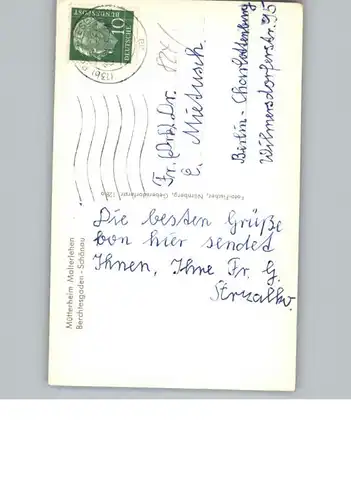 Die besten Grüße
von hier sendet
Ihnen, Ihre Fr. G.
Strzalko.
Mütterheim Malterlehen
Berchtesgaden - Schönau
Foto-Fischer, Nürnberg,
10
DEUTSCHE
BUNDESPOST
(13b)
Fr. Dr.
E. Mietusch
Berlin - Charlottenburg
Wilmersdorferstr. 95